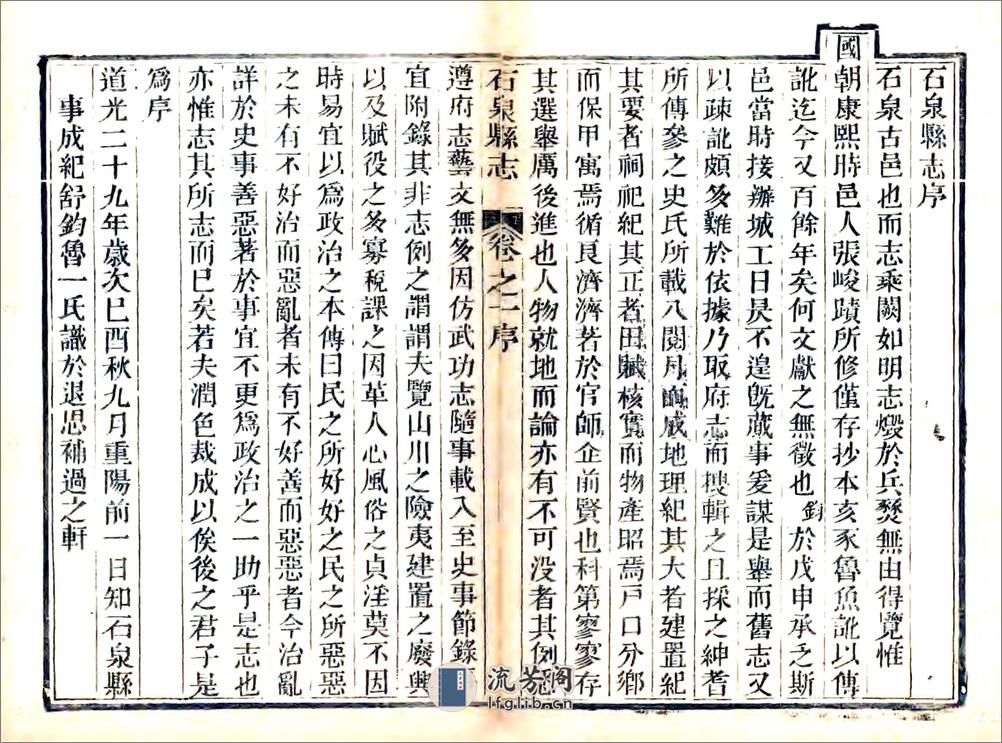 石泉縣志序
石泉古邑也而志乘闕如明志燬於兵燹無由得覽惟
國朝康熙時邑人張峻蹟所修僅存抄本亥豕魯魚訛以傳
訛迄今又百餘年矣何文獻之無徵也鈞於戊申承乏斯
邑當時接辦城工日昃不遑旣蕆事爰謀是舉而舊志又
以疎訛頗多難於依據乃取府志而搜輯之且採之紳耆
所傳參之史氏所載八閱月而成地理紀其大者建置紀
其要者祠祀紀其正者田賦核實而物產昭焉戶口分鄉
而保甲寓焉循良濟濟著於官師企前賢也科第寥寥存
其選舉厲後進也人物就地而論亦有不可没者其例悉
石泉縣志 卷之一序
遵府志藝文無多因仿武功志隨事載入至史事節錄
宜附錄其非志例之謂謂夫覽山川之險夷建置之廢興
以及賦役之多寡稅課之因革人心風俗之貞淫莫不因
時易宜以爲政治之本傳曰民之所好好之民之所惡惡
之未有不好治而惡亂者未有不好善而惡惡者今治亂
詳於史事善惡著於事宜不更爲政治之一助乎是志也
亦惟志其所志而已矣若夫潤色裁成以俟後之君子是
爲序
道光二十九年歲次已酉秋九月重陽前一日知石泉縣
事成紀舒鈞魯一氏識於退思補過之軒
流芳閣
lfglib.cn